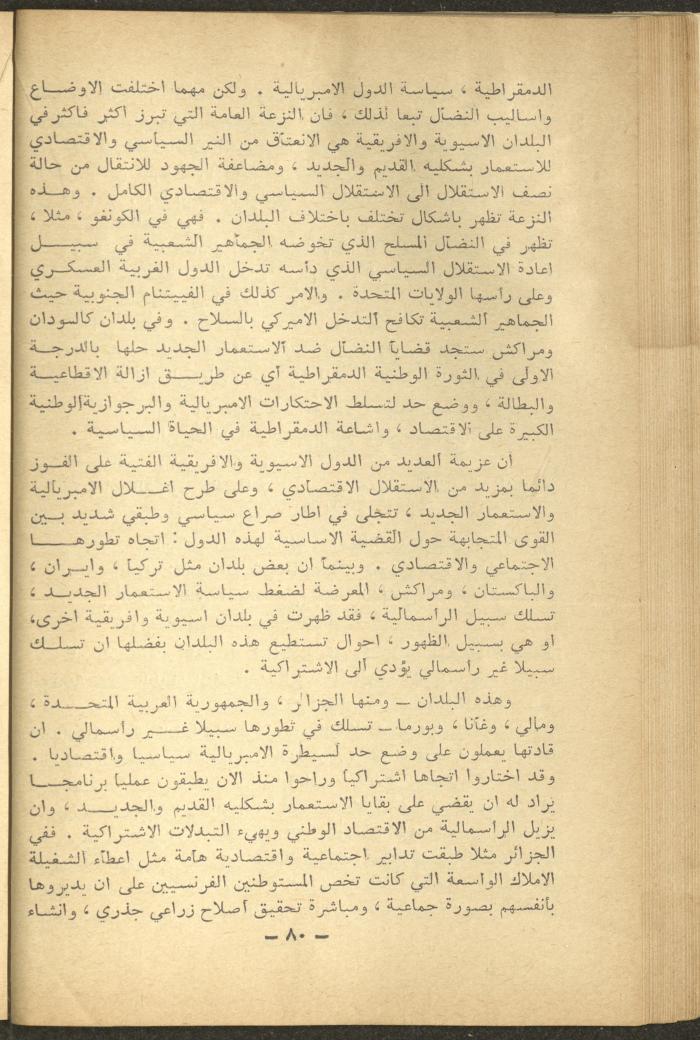 الدمقراطية ، سياسة الدول الامبريالية . ولكن مهما اختلفت الاوضاع
واساليب النضال تبعا لذلك ، فان النزعة العامة التي تبرز اكثر فاكثر في
البلدان الاسيوية والافريقية هي الانعتاق من النير السياسي والاقتصادي
للاستعمار بشكليه القديم والجديد ، ومضاعفة الجهود للانتقال من حالة
نصف الاستقلال الى الاستقلال السياسي والاقتصادي الكامل . وهذه
النزعة تظهر باشكال تختلف باختلاف البلدان . فهي في الكونغو ، مثلا ،
تظهر في النضال المسلح الذي تخوضه الجماهير الشعبية في سبيل
اعادة الاستقلال السياسي الذي داسه تدخل الدول الغربية العسكري
وعلى رأسها الولايات المتحدة . والامر كذلك في الفييتنام الجنوبية حيث
الجماهير الشعبية تكافح التدخل الاميركي بالسلاح . وفي بلدان كالسودان
ومراكش ستجد قضايا النضال ضد الاستعمار الجديد حلها بالدرجة
الاولى في الثورة الوطنية الدمقراطية أي عن طريق ازالة الاقطاعية
والبطالة ، ووضع حد لتسلط الاحتكارات الامبريالية والبرجوازية الوطنية
الكبيرة على الاقتصاد ، واشاعة الدمقراطية في الحياة السياسية .
أن عزيمة العديد من الدول الاسيوية والافريقية الفتية على الفوز
دائما بمزيد من الاستقلال الاقتصادي ، وعلى طرح اغلال الامبريالية
والاستعمار الجديد ، تتجلى في اطار صراع سياسي وطبقي شديد بين
القوى المتجابهة حول القضية الاساسية لهذه الدول : اتجاه تطورها
الاجتماعي والاقتصادي . وبينما ان بعض بلدان مثل تركيا ، وايران ،
والباكستان ، ومراكش ، المعرضة لضغط سياسة الاستعمار الجديد ،
تسلك سبيل الرأسمالية ، فقد ظهرت في بلدان اسيوية وافريقية اخرى،
او هي بسبيل الظهور ، احوال تستطيع هذه البلدان بفضلها ان تسلك
سبيلا غير رأسمالي يؤدي الى الاشتراكية .
وهذه البلدان ــ ومنها الجزائر ، والجمهورية العربية المتحدة ،
ومالي ، وغانا ، وبورما ــ تسلك في تطورها سبيلا غير رأسمالي . ان
قادتها يعملون على وضع حد لسيطرة الامبريالية سياسيا واقتصاديا .
وقد اختاروا اتجاها اشتراكيا وراحوا منذ الان يطبقون عمليا برنامجا
يراد له ان يقضي على بقايا الاستعمار بشكليه القديم والجديد ، وان
يزيل الرأسمالية من الاقتصاد الوطني ويهيء التبدلات الاشتراكية . ففي
الجزائر مثلا طبقت تدابير اجتماعية واقتصادية هامة مثل اعطاء الشغيلة
الاملاك الواسعة التي كانت تخص المستوطنين الفرنسيين على ان يديروها
بأنفسهم بصورة جماعية ، ومباشرة تحقيق أصلاح زراعي جذري ، وانشاء
ــ ٨٠ ــ